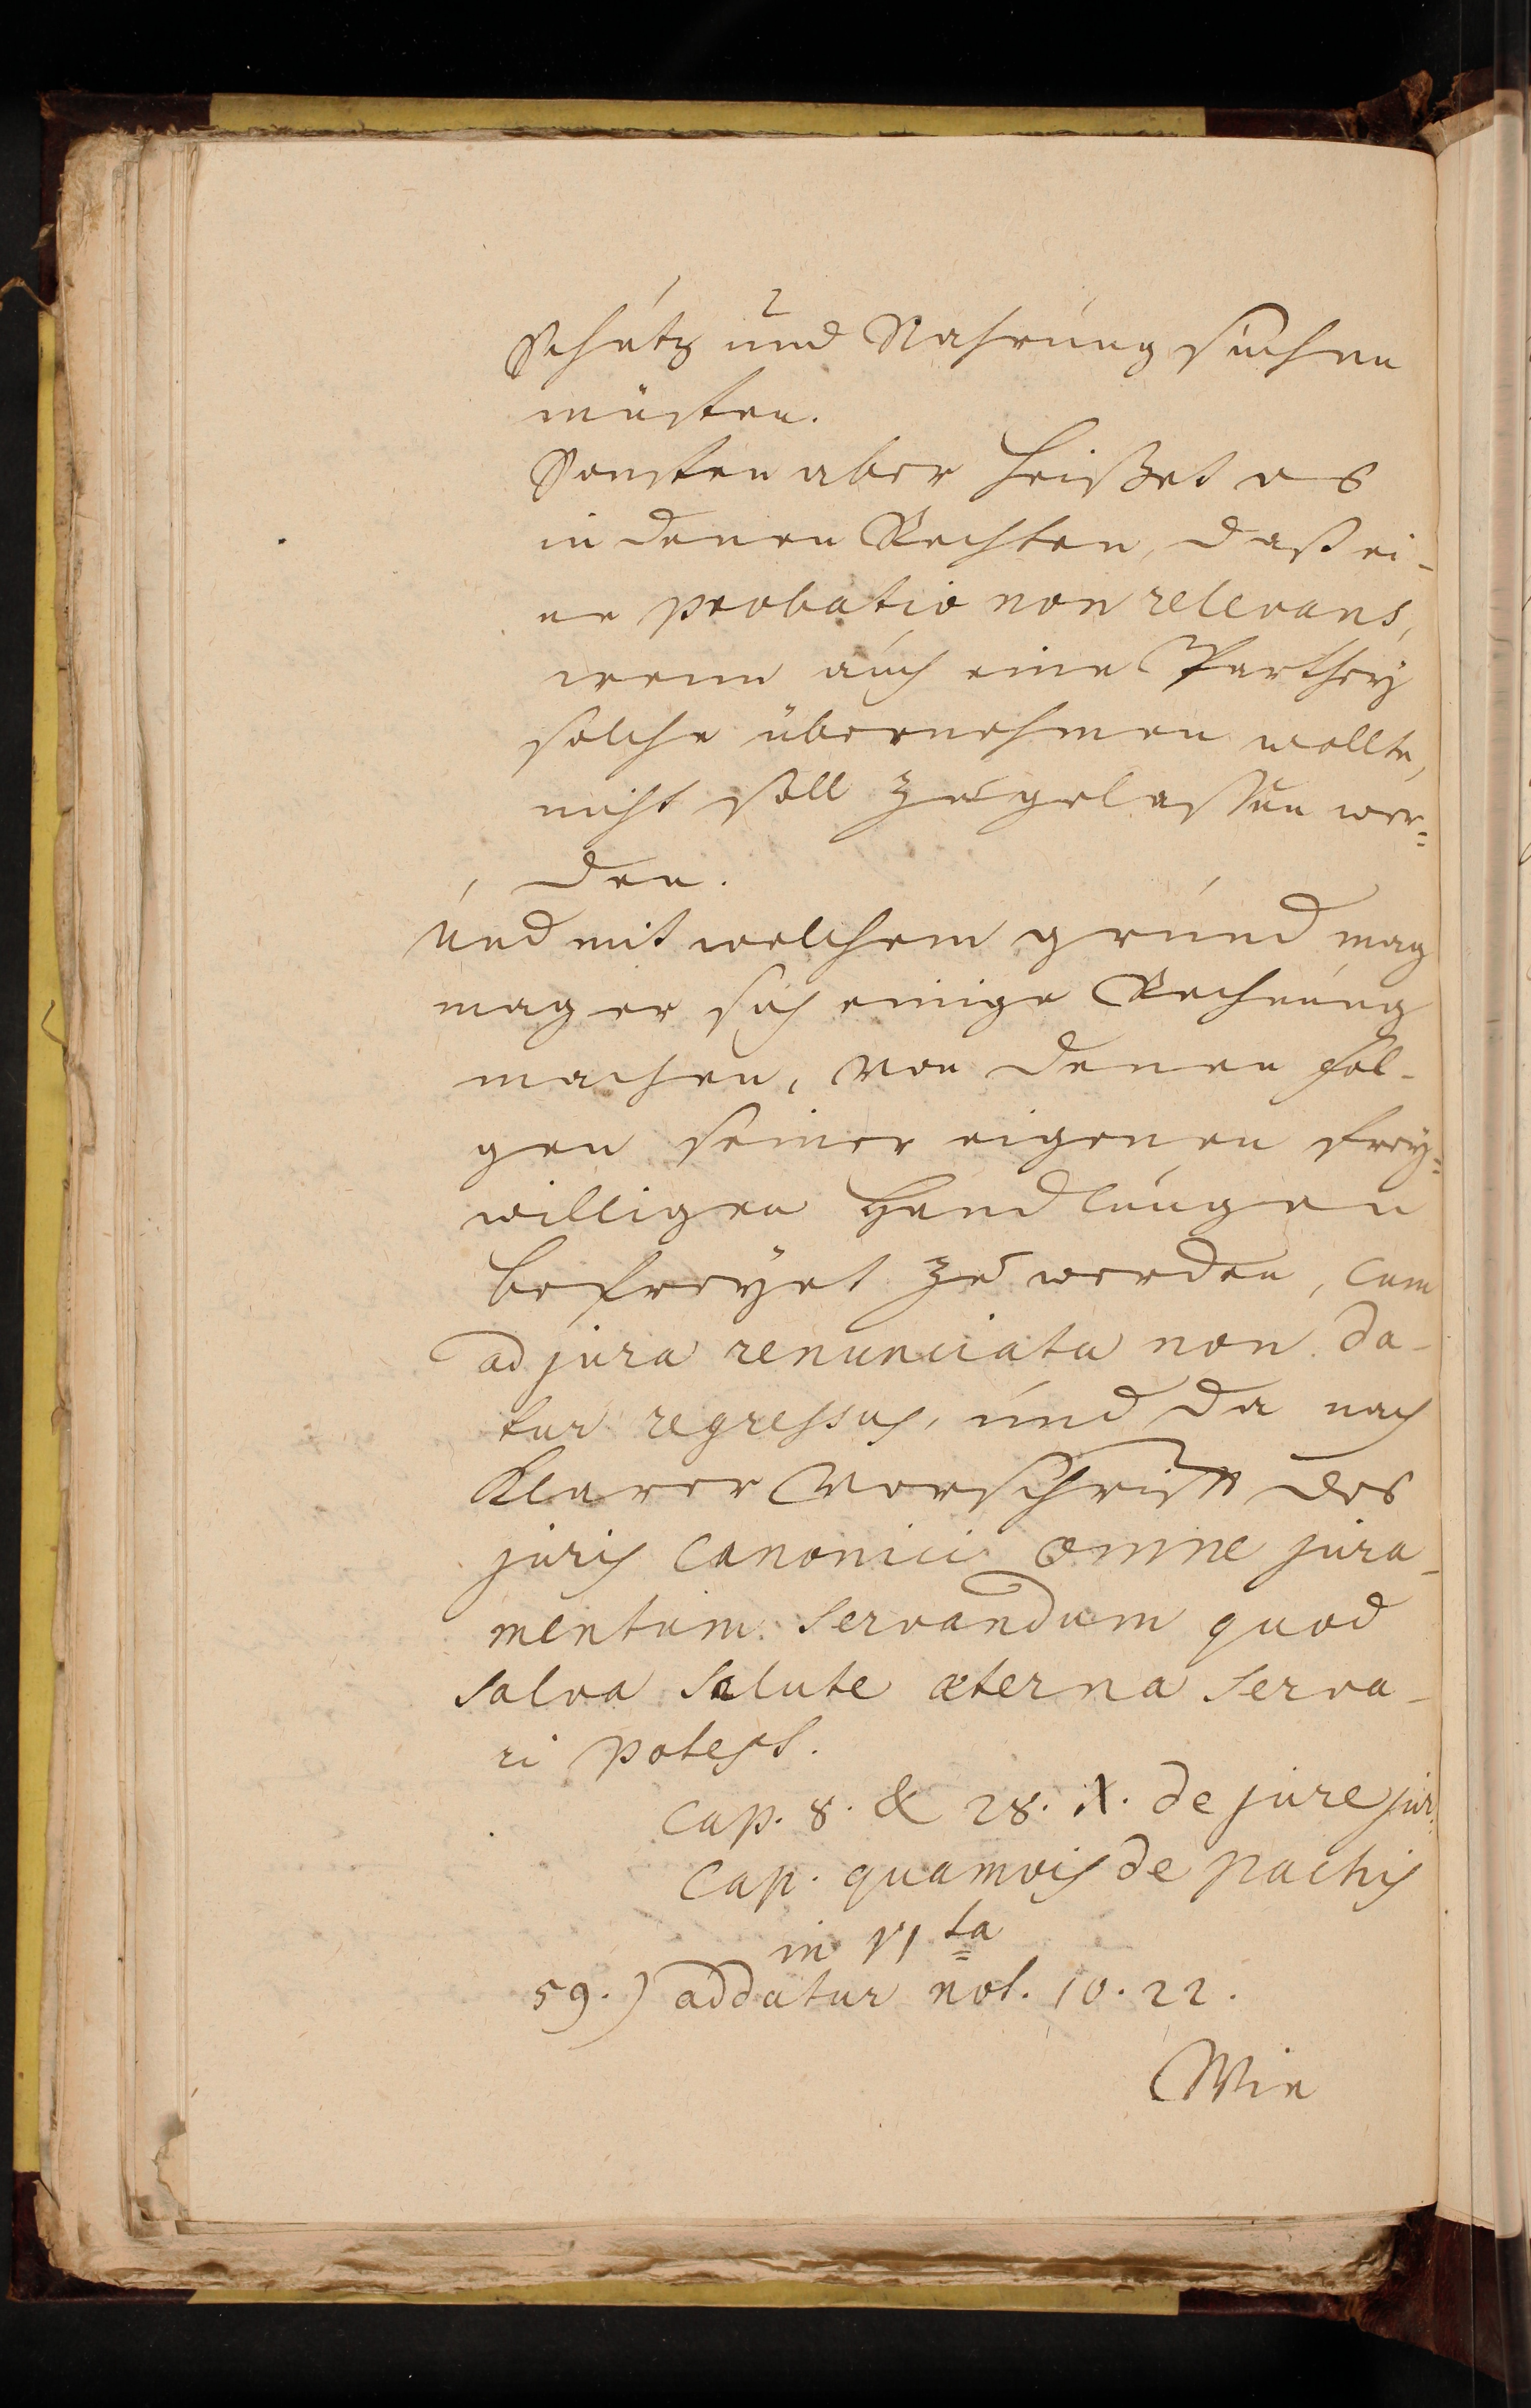 Schutz und Nahrung suchen
müsten.
Sonsten aber heißet es
in denen Rechten, daß ei-
ne probatio non relevans,
wenn auch eine Parthey
solche übernehmen wollte,
nicht soll zugelaßen wer=
den.
Und mit welchem grund mag
mag er sich einige Rechnung
machen, von denen fol-
gen seiner eigenen frey=
willigen Handlungen
befreyet zu werden, cum
ad jura renunciata non da-
tur regressus, und da nach
klarer Vorschrifft des
juris canonici omne jura-
mentum servandum quod
salva salute æterna serva-
ri potest.
cap. 8. & 28. X. de jure jur.
cap. quamvis de pactis
in VIta
59.) addatur not. 10. 22.
Wie